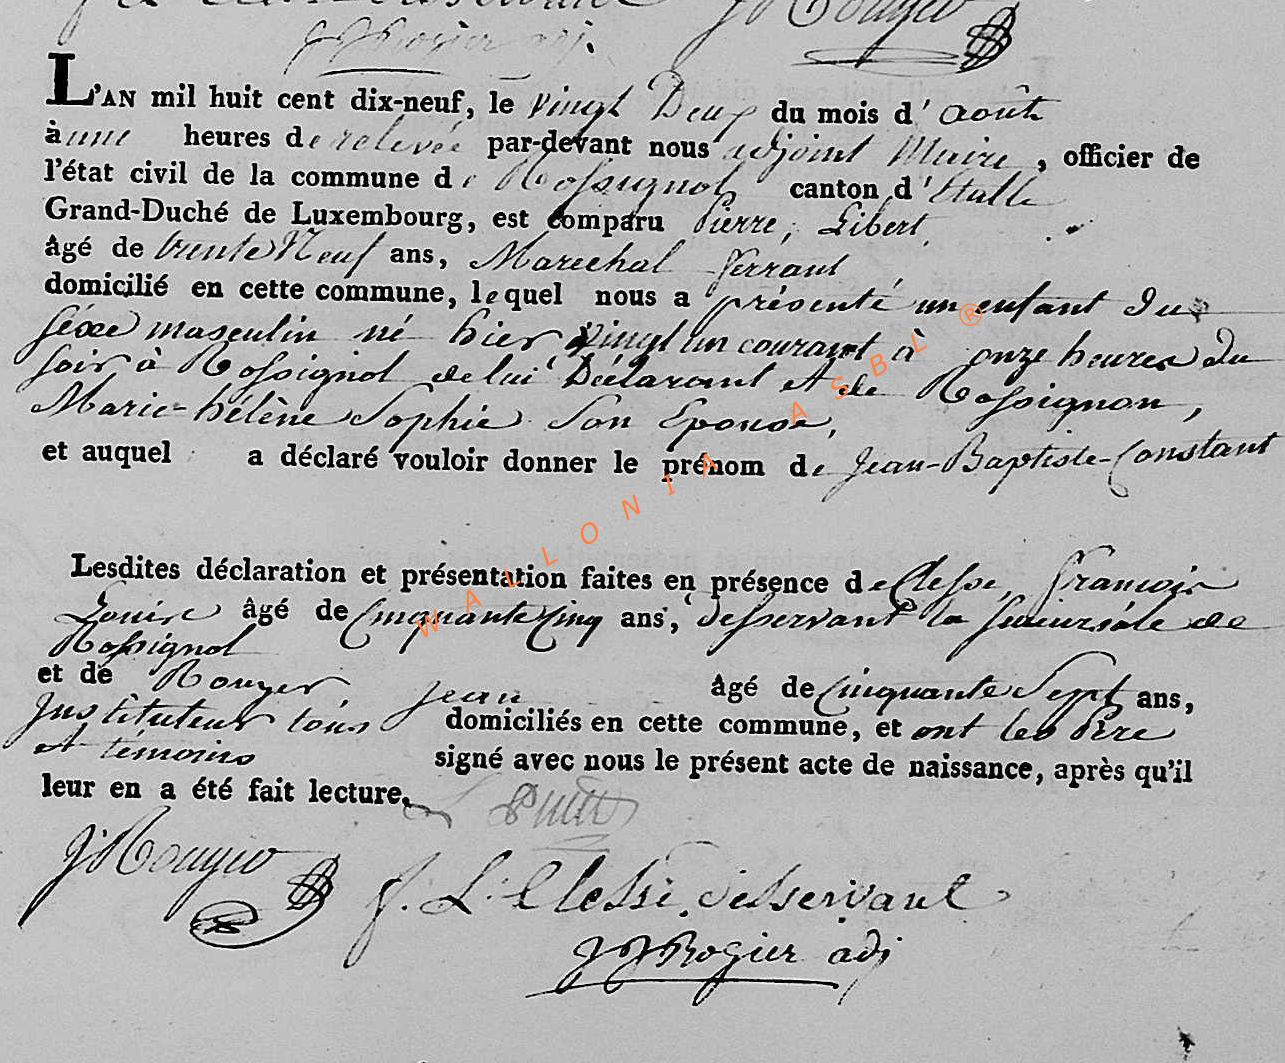 J J Rogier adj.
J. Rouyer
L'AN mil huit cent dix-neuf, le vingt Deux du mois d' août
à une heures de relevée par-devant nous adjoint Maire, officier de
l'état civil de la commune de Rossignol canton d'Etalle
Grand-Duché de Luxembourg, est comparu Pierre, Gibert,
âgé de trente Neuf ans, Marechal ferrant
domicilié en cette commune, lequel nous a présenté un enfant du
séxe masculin né hier vingt un courant à onze heures du
soir à Rossignol de lui Déclarant et de Rossignon,
Marie-hélène Sophie Son Epouse,
et auquel a déclaré vouloir donner le prénom de Jean-Baptiste-Constant
Lesdites déclaration et présentation faites en présence de Clesse, francois
Louise âgé de Cinquante Cinq ans, desservant la succursale de
Rossignol
et de Rouyer, jean âgé de Cinquante Sept ans,
Instituteur tous domiciliés en cette commune, et ont les Père
et témoins signé avec nous le présent acte de naissance, après qu'il
leur en a été fait lecture,
J. Rouyer
f. L. Clesse, desservant
J J Rogier adj
WALLONIA ASBL ®